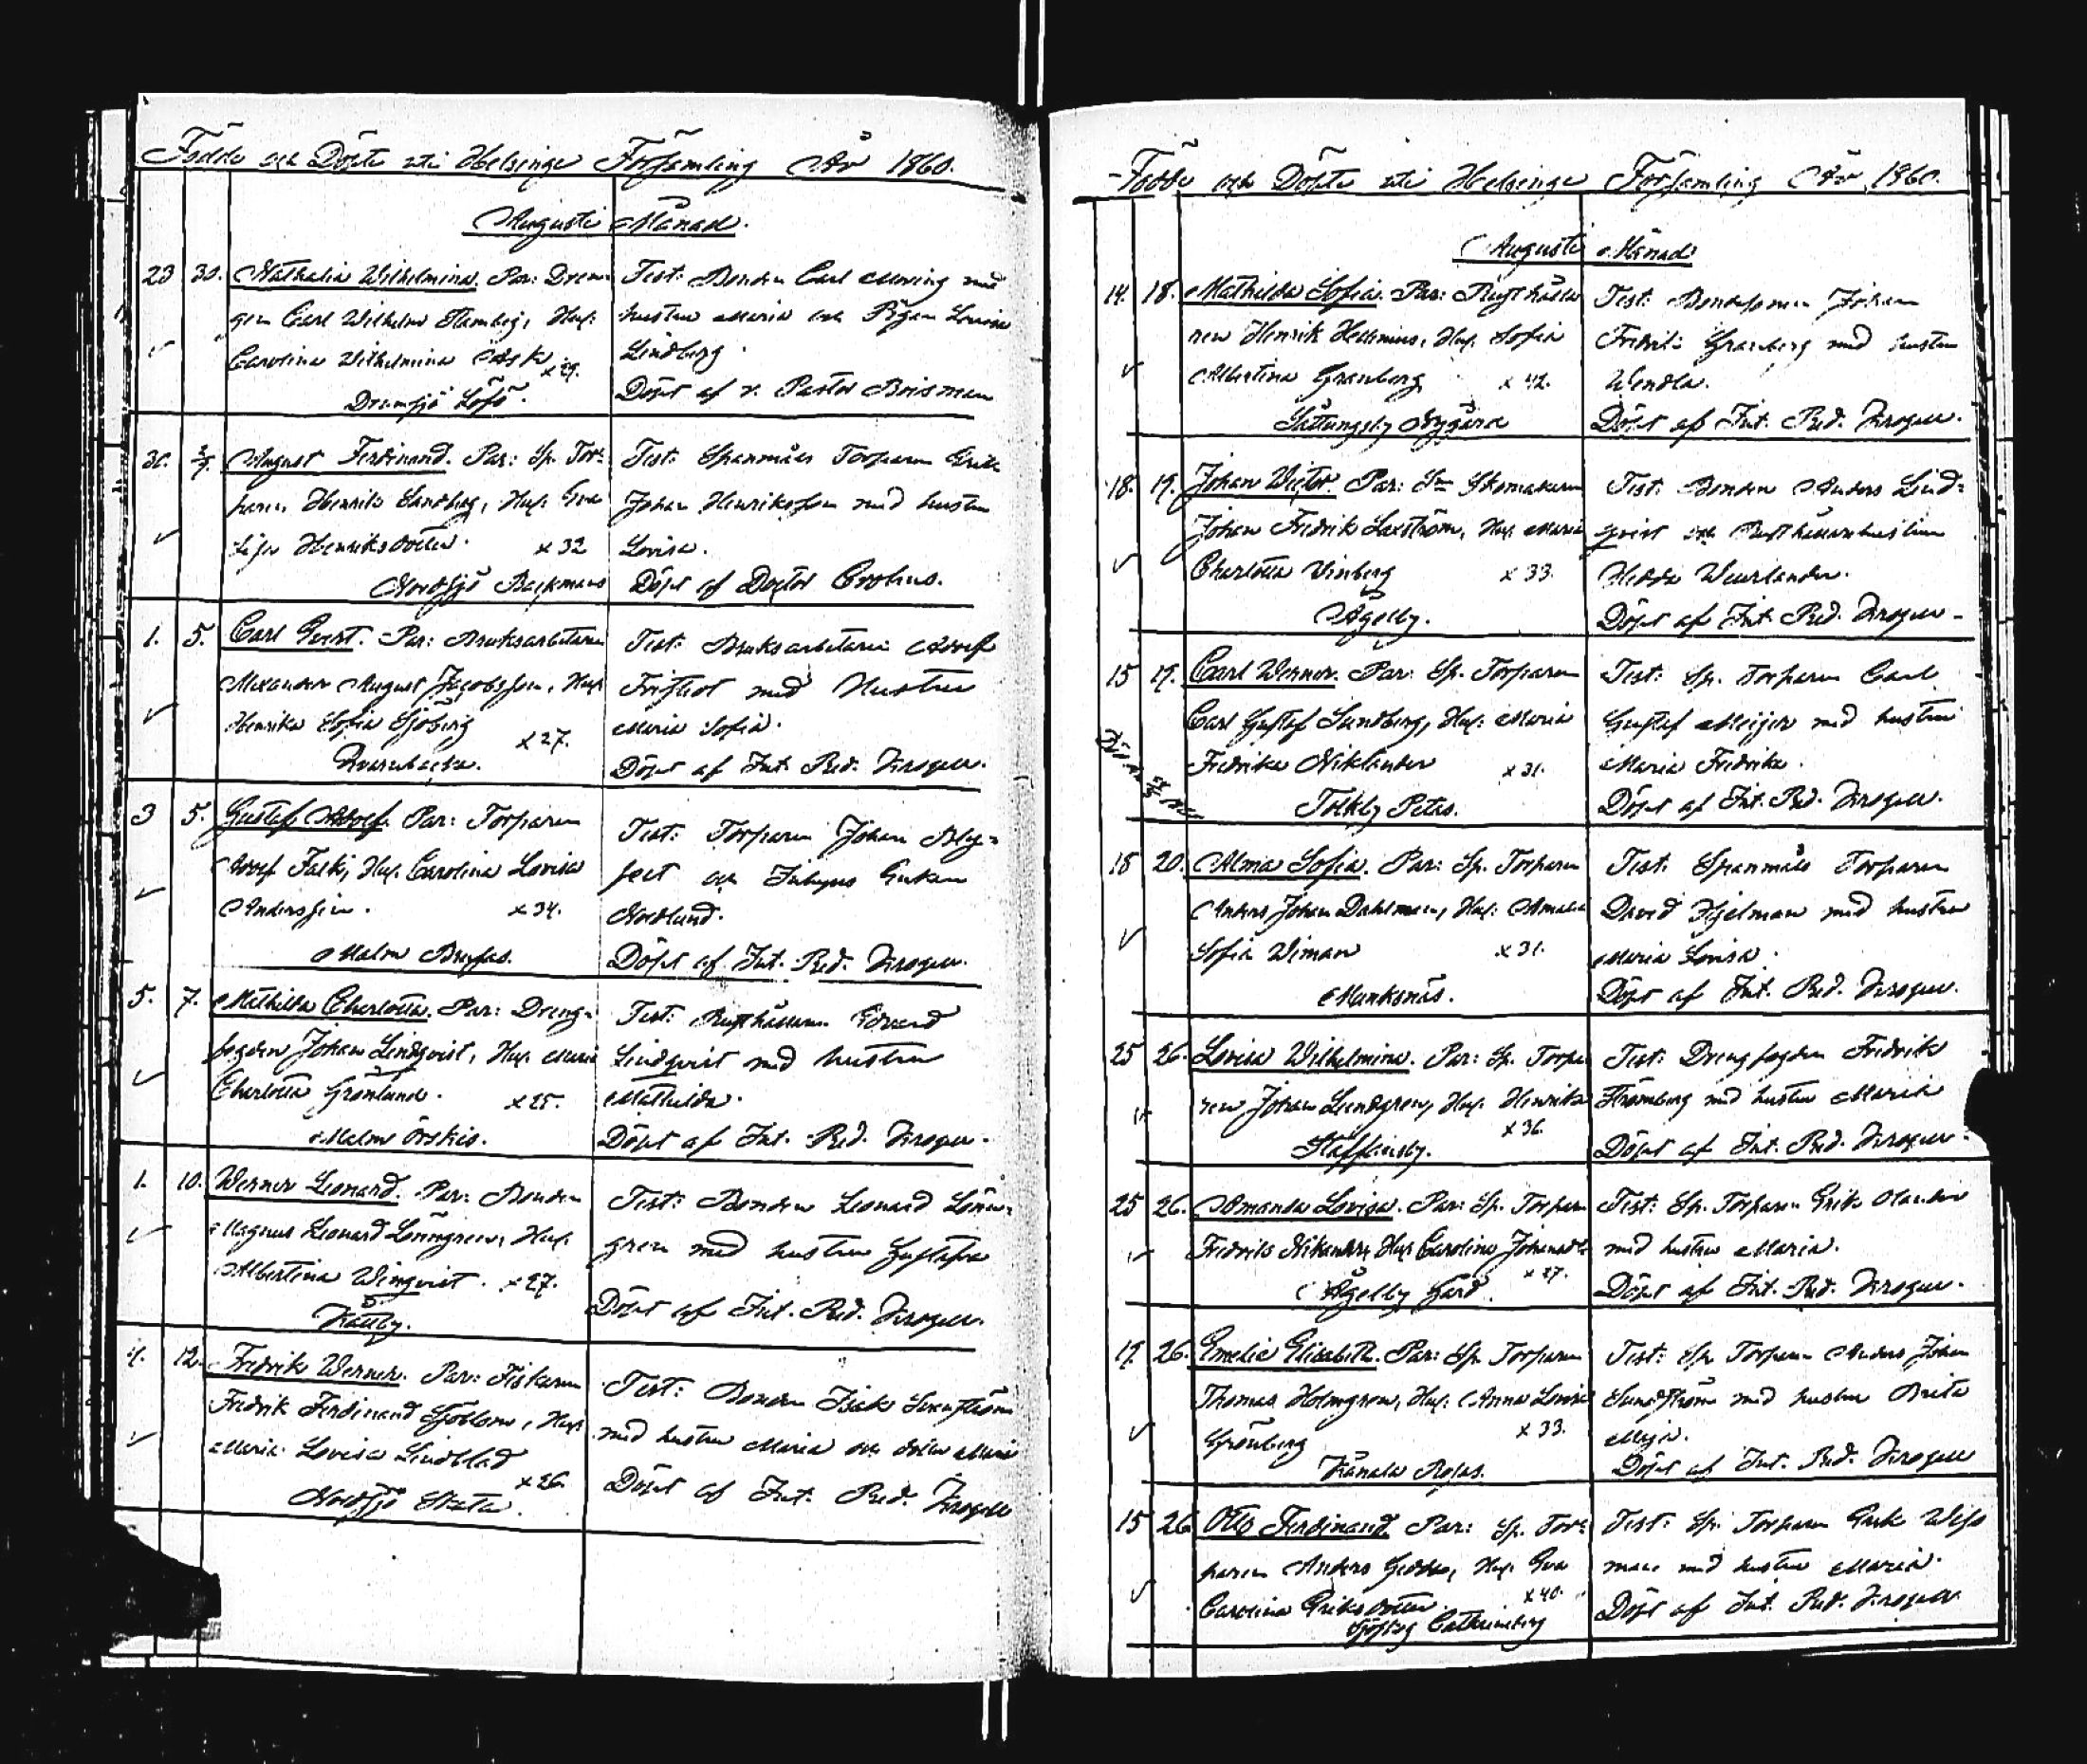 Födde och Döpte uti Helsinge Församling År 1860.
Augusti Månad.
23 30. Nathalia Wilhelmina. Par: Dren-
gen Carl Wilhelm Hamberg, Hus:
Carolina Wilhelmina Ask x 29.
Drumsjö Löfö.
Test: Bonden Carl Moring med
hustru Maria och Pigan Lovisa
Lindberg.
Döpt af v. Pastor Boisman
30. 2/9. August Ferdinand. Par: Sp. Tor-
paren Henrik Sandberg, Hus: Eva
Lisa Henriksdotter. x 32
Nordsjö Backmans
Test: Spanmåls Torparen Erik
Johan Henriksson med hustru
Lovisa.
Döpt af Doctor Crohns.
1. 5. Carl Evert. Par: Bruksarbetaren
Alexander August Jacobsson, Hus:
Henrika Sofia Sjöberg x 27.
Qvarnbacka.
Test: Bruksarbetaren Adolf
med Hustru
Maria Sofia.
Döpt af Int. Pred. Krogell.
3 5. Gustaf Adolf. Par: Torparen
Adolf Falk, Hus: Carolina Lovisa
Andersson. x 34.
Malm Brusas.
Test: Torparen Johan Bly-
fert och Inhyses Enkan
Nordlund.
Döpt af Int. Pred. Krogell.
5. 7. Mathilda Charlotta. Par: Dreng-
fogden Johan Lindqvist, Hus: Maria
Charlotta Grönlund. x 25.
Malm Örskis.
Test: Rusthållaren Edvard
Lindqvist med hustru
Mathilda.
Döpt af Int. Pred. Krogell.
1. 10. Werner Leonard. Par: Bonden
Magnus Leonard Lönngren, Hus:
Albertina Winqvist. x 27.
Test: Bonden Leonard Lönn-
gren med hustru Gustafva
Döpt af Int. Pred. Krogell.
4. 12. Fredrik Werner. Par: Fiskaren
Fredrik Ferdinand Sjöblom, Hus:
Maria Lovisa Lindblad x 26.
Nordsjö Skata.
Test: Bonden Isak Svanström
med hustru Maria och dotter Maria
Döpt af Int. Pred. Krogell
Födde och Döpte uti Helsinge Församling År 1860.
Augusti Månad
14. 18. Mathilda Sofia. Par: Rusthålla-
ren Henrik Hellenius, Hus: Sofia
Albertina Granberg x 42.
Sättungsby Nygård
Test: Bondesonen Johan
Fredrik Granberg med hustru
Wendla.
Döpt af Int. Pred. Krogell.
18. 19. Johan Victor. Par: Sn Skomakaren
Johan Fredrik Laxström, Hus: Maria
Charlotta Vinberg x 33.
Ågelby.
Test: Bonden Anders Lind-
qvist och Rusthållarehustrun
Hedda Weurlander.
Döpt af Int. Pred. Krogell.
15 19. Carl Werner. Par: Sp. Torparen
Carl Gustaf Sundberg, Hus: Maria
Fredrika Niklander x 31.
Tolkby Petas.
Test: Sp. Torparen Carl
Gustaf Meijer med hustru
Maria Fredrika.
Döpt af Int. Pred. Krogell.
18 20. Alma Sofia. Par: Sp. Torparen
Anders Johan Dahlman, Hus: Amalia
Sofia Wiman x 31.
Munksnäs.
Test: Spanmåls Torparen
David Hjelman med hustru
Maria Lovisa.
Döpt af Int. Pred. Krogell.
25 26. Lovisa Wilhelmina. Par: Sp. Torpa-
ren Johan Lundgren, Hus: Henrika
x 36.
Staffansby.
Test: Drengfogden Fredrik
Strömberg med hustru Maria
Döpt af Int. Pred. Krogell.
25 26. Amanda Lovisa. Par: Sp. Torparen
Fredrik Nikander, Hus: Carolina Johansd:r
x 27.
Ågelby Gård.
Test: Sp. Torparen Erik Olander
med hustru Maria.
Döpt af Int. Pred. Krogell.
19. 26. Emelie Elisabeth. Par: Sp. Torparen
Thomas Holmgren, Hus: Anna Lovisa
Grönberg x 33.
Kånala Rolas.
Test: Sp. Torparen Anders Johan
Sundström med hustru Brita
Maja.
Döpt af Int. Pred. Krogell
15 26 Otto Ferdinand. Par: Sp. Tor-
paren Anders Gädda, Hus: Eva
Carolina Eriksdotter. x 40.
Sjöskog Cathrineberg
Test: Sp. Torparen Erik
man med hustru Maria.
Döpt af Int. Pred. Krogell.